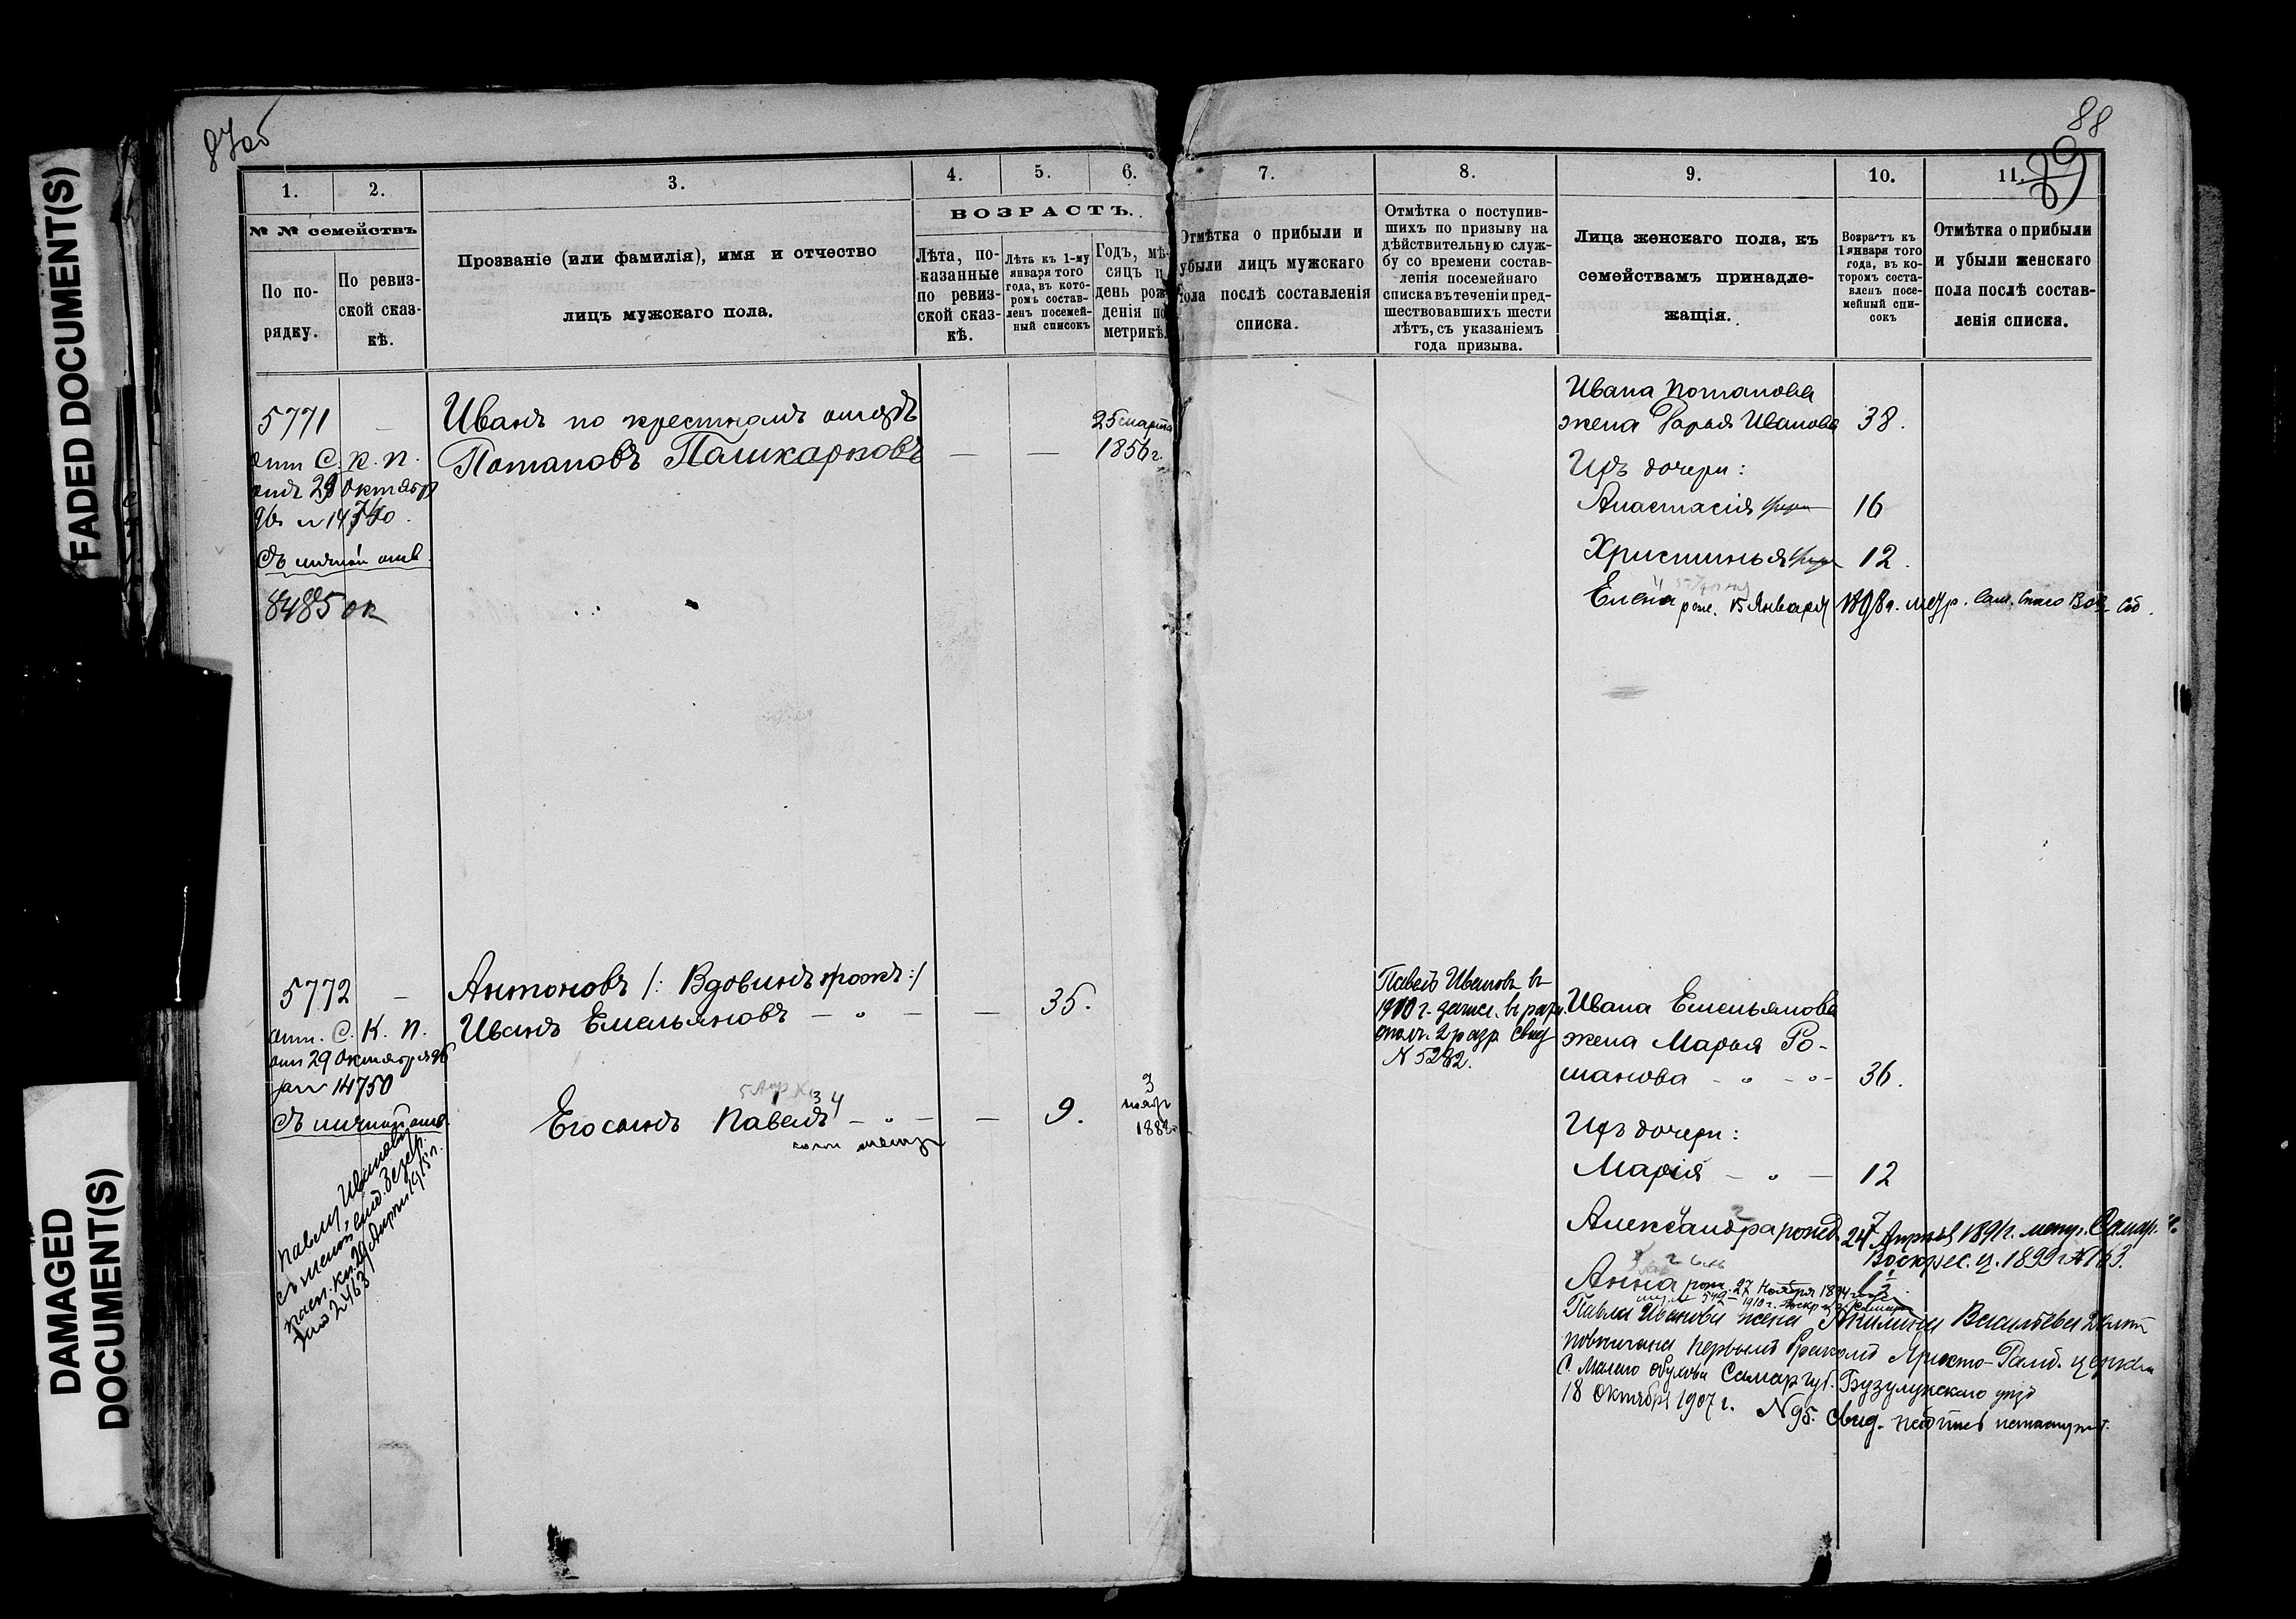 FADED DOCUMENT(S)
DAMAGED
DOCUMENT(S)
87об
88
89
1.
2.
3.
4.
5.
6.
№ № семействъ
По по-
рядку.
По ревиз-
ской сказ-
кѣ.
Прозваніе (или фамилія), имя и отчество
лицъ мужскаго пола.
ВОЗРАСТЪ.
Лѣта, по-
казанные
по ревиз-
ской сказ-
кѣ.
Лѣта къ 1-му
января того
года, въ кото-
ромъ состав-
ленъ посемей-
ный списокъ
Годъ, мѣ-
сяцъ и
день рож-
денія по
метрикѣ.
7.
8.
9.
10.
11.
Отмѣтка о прибыли и
убыли лицъ мужскаго
пола послѣ составленія
списка.
Отмѣтка о поступив-
шихъ по призыву на
дѣйствительную служ-
бу со времени состав-
ленія посемейнаго
списка въ теченіи пред-
шествовавшихъ шести
лѣтъ, съ указаніемъ
года призыва.
Лица женскаго пола, къ
семействамъ принадле-
жащія.
Возрастъ къ
1 января того
года, въ ко-
торомъ соста-
вленъ посе-
мейный спи-
сокъ
Отмѣтка о прибыли
и убыли женскаго
пола послѣ состав-
ленія списка.
5771 —
опт С. К. П.
отъ 29 октября
96 №
8485 ок
Иванъ по крестномъ отцѣ
Потаповъ Пашкарповъ — —
25 марта
1856 г.
Ивана Потапова
жена Дарья Иванова 38.
Ихъ дочери:
Анастасія 16
Христинья 12.
Елена рож. 15 Января 1898 г. метр.
5772 —
опт. С. К. П.
отъ 29 Октября 96
за № 14750
Павлу Иванову
съ женой
29 Апреля 1915 г.
за № 2463
Антоновъ /: Вдовинъ тожъ :/
Иванъ Емельяновъ — — — 35.
Его сынъ Павелъ — — — 9.
3 4
копи метр
3
нояб
188
Павелъ Ивановъ въ
1910 г. зачисл. въ ратн.
ополч. 2 разр свид
№ 5282.
Ивана Емельянова
жена Марья Ро-
манова — — 36.
Ихъ дочери:
Марія — — 12
Александра рожд. 24 Апреля 1891 г. метр. Самар.
Воскрес. ц. 1899 г № 163.
Анна рож. 27 Ноября 1894 года
Павла Иванова жена Акилина Васильева
повенчана первымъ бракомъ церкви
С. Малаго Самар губ. Бузулукскаго уезд
18 октября 1907 г. № 95. свид.